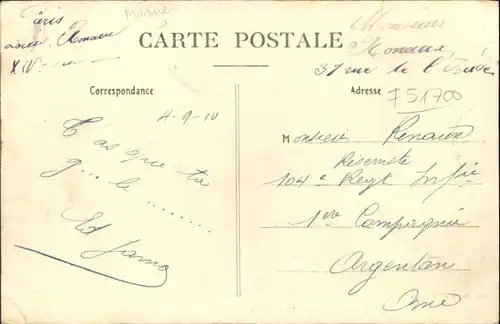 Paris
CARTE POSTALE
Monsieur
Renaux
31 rue de l'
Correspondance
Adresse
751700
4-9-10
T'as que tu
g... le .........
Monsieur Renaux
Réserviste
104e Regt Inf ie
1ère Compagnie
Argentan
Orne